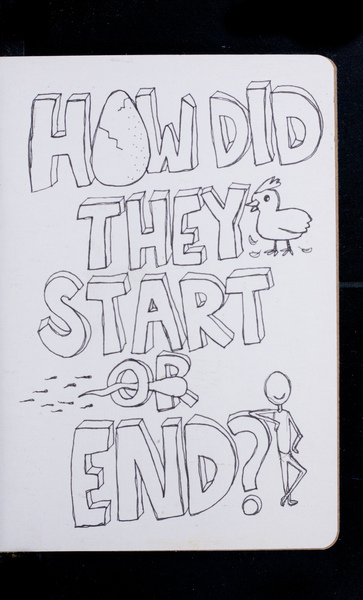 HOW DID
THEY
START
OR
END?